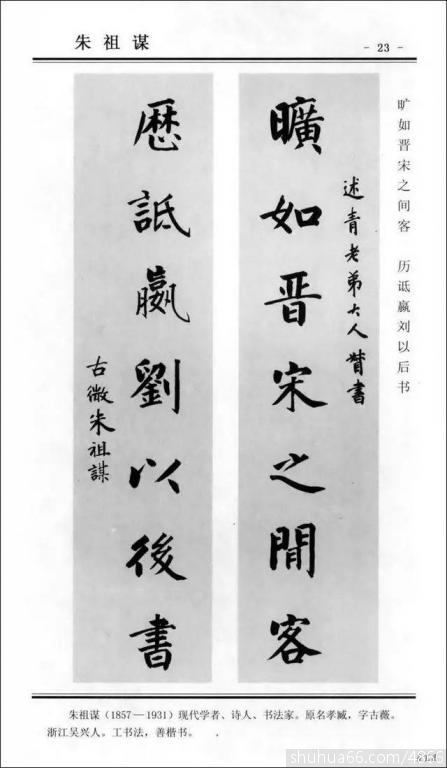 朱祖谋
- 23 -
旷如晋宋之间客 历诋嬴刘以后书
述青老弟大人書
曠如晋宋之閒客
曆詆嬴劉以後書
古微朱祖謀
朱祖谋（1857—1931）现代学者、诗人、书法家。原名孝臧，字古薇。
浙江吴兴人。工书法，善楷书。
shuhua66.com